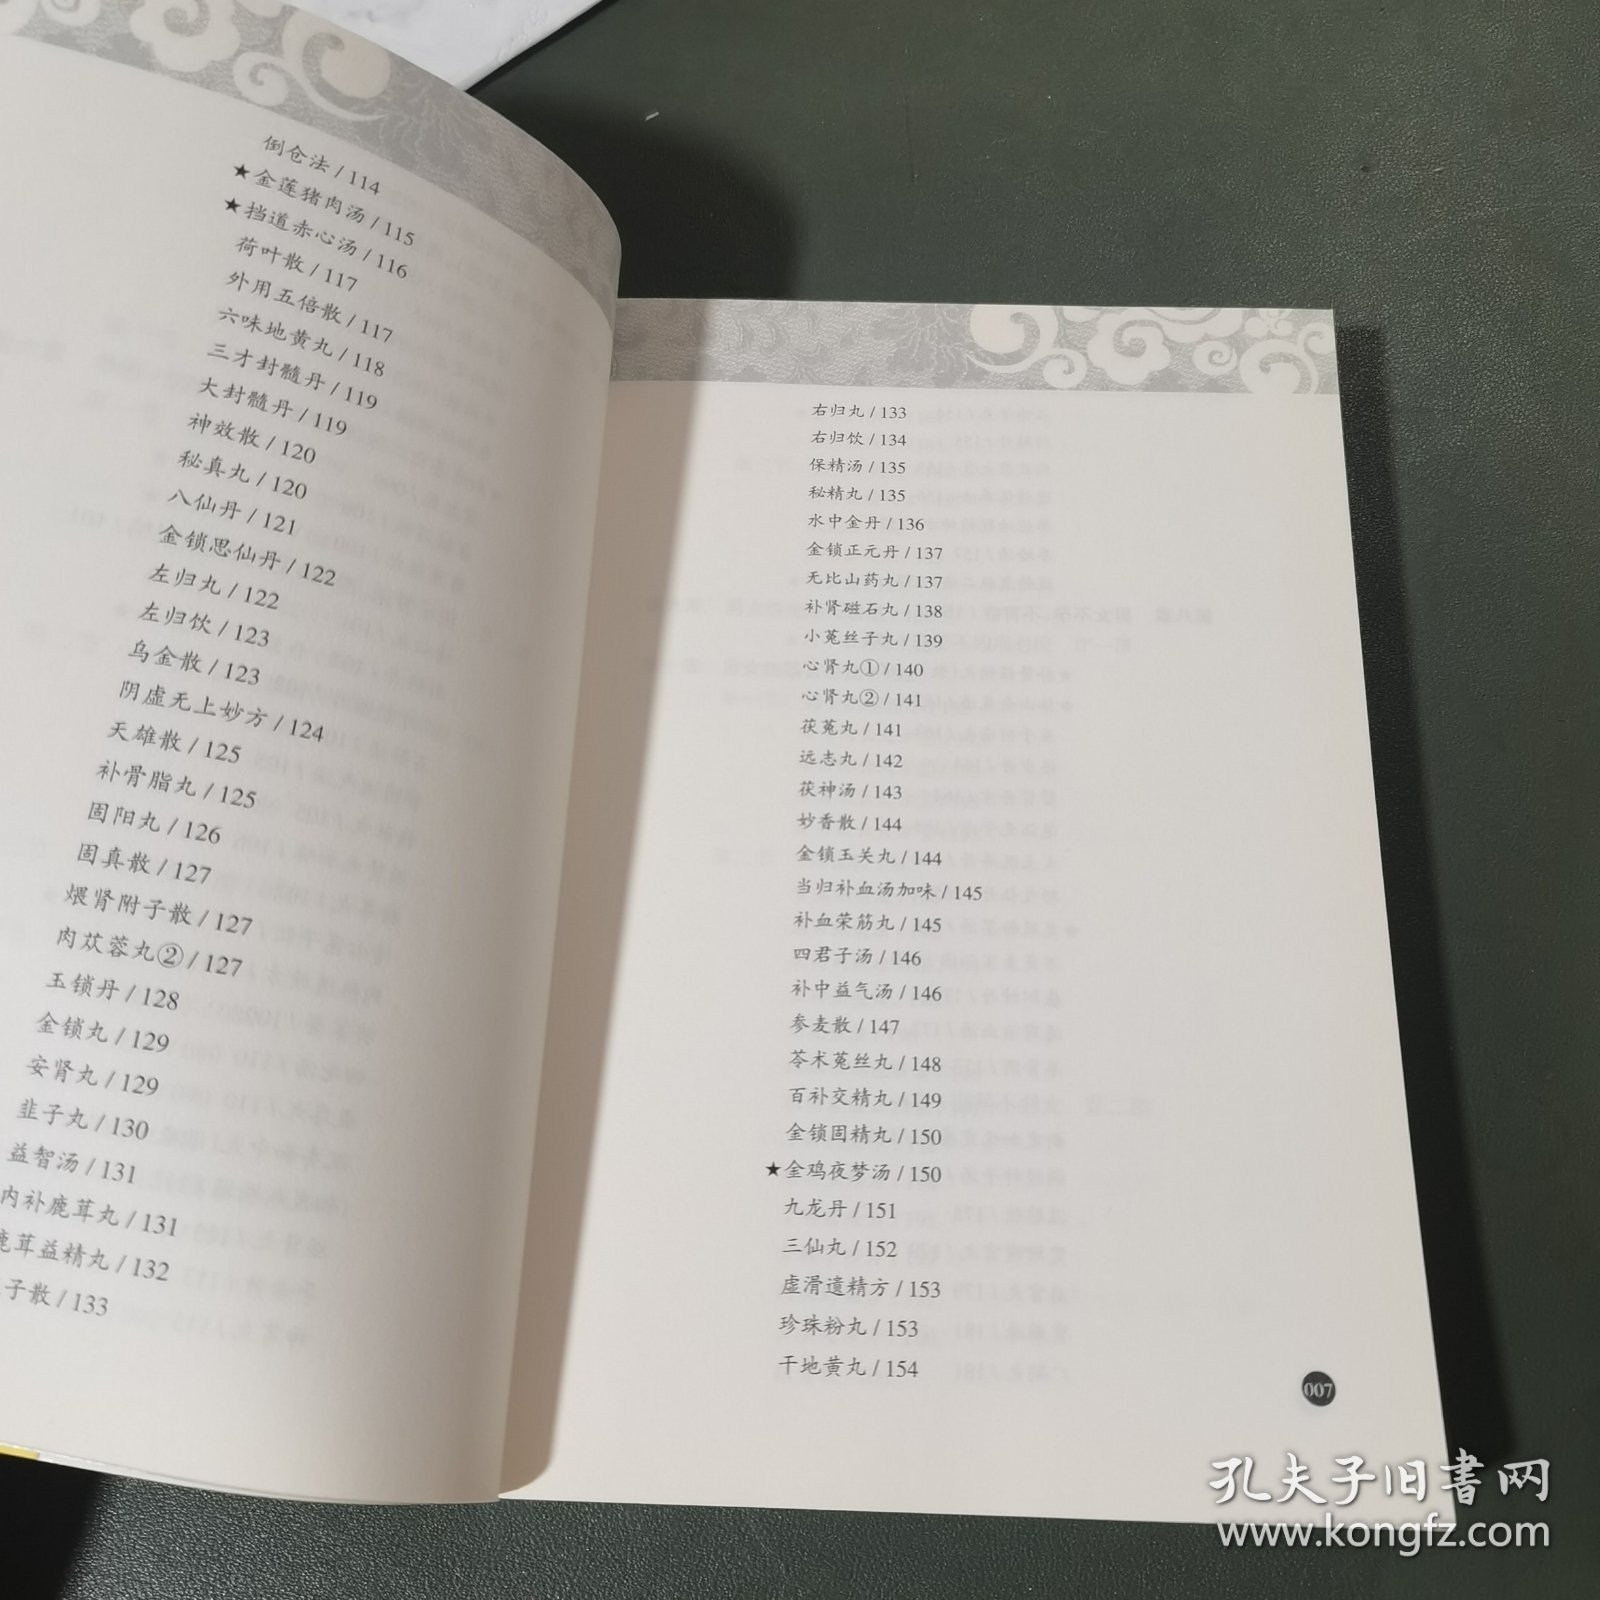 倒仓法 / 114
★金莲猪肉汤 / 115
★挡道赤心汤 / 116
荷叶散 / 117
外用五倍散 / 117
六味地黄丸 / 118
三才封髓丹 / 119
大封髓丹 / 119
神效散 / 120
秘真丸 / 120
八仙丹 / 121
金锁思仙丹 / 122
左归丸 / 122
左归饮 / 123
乌金散 / 123
阴虚无上妙方 / 124
天雄散 / 125
补骨脂丸 / 125
固阳丸 / 126
固真散 / 127
煨肾附子散 / 127
肉苁蓉丸② / 127
玉锁丹 / 128
金锁丸 / 129
安肾丸 / 129
韭子丸 / 130
益智汤 / 131
内补鹿茸丸 / 131
鹿茸益精丸 / 132
子散 / 133
右归丸 / 133
右归饮 / 134
保精汤 / 135
秘精丸 / 135
水中金丹 / 136
金锁正元丹 / 137
无比山药丸 / 137
补肾磁石丸 / 138
小菟丝子丸 / 139
心肾丸① / 140
心肾丸② / 141
茯菟丸 / 141
远志丸 / 142
茯神汤 / 143
妙香散 / 144
金锁玉关丸 / 144
当归补血汤加味 / 145
补血荣筋丸 / 145
四君子汤 / 146
补中益气汤 / 146
参麦散 / 147
苓术菟丝丸 / 148
百补交精丸 / 149
金锁固精丸 / 150
★金鸡夜梦汤 / 150
九龙丹 / 151
三仙丸 / 152
虚滑遗精方 / 153
珍珠粉丸 / 153
干地黄丸 / 154
007
孔夫子旧书网
www.kongfz.com